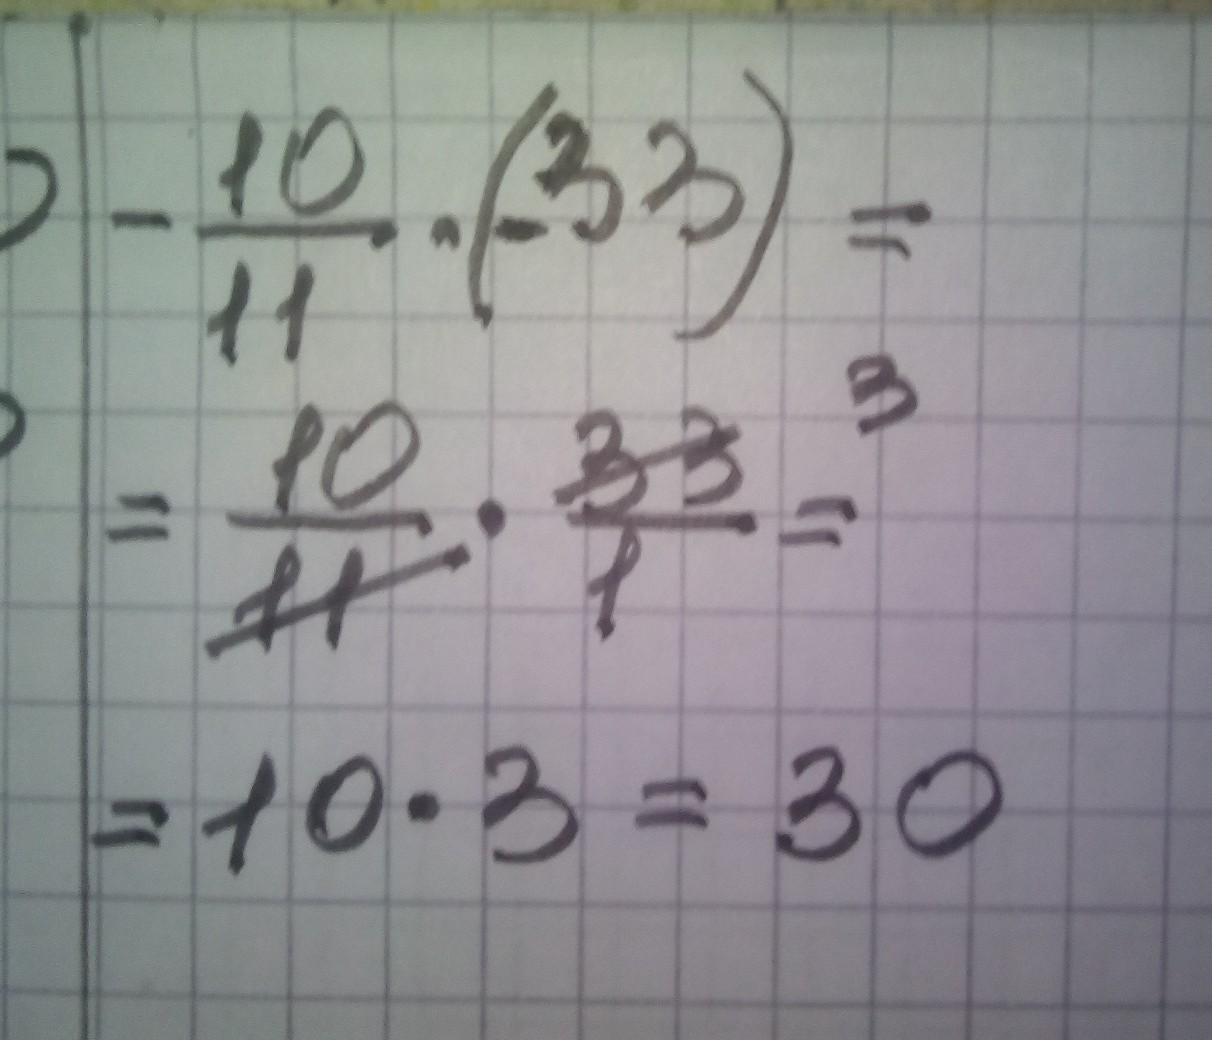 - 10/11 · (-33) =
= 10/11 · 33/1 = 3
= 10 · 3 = 30